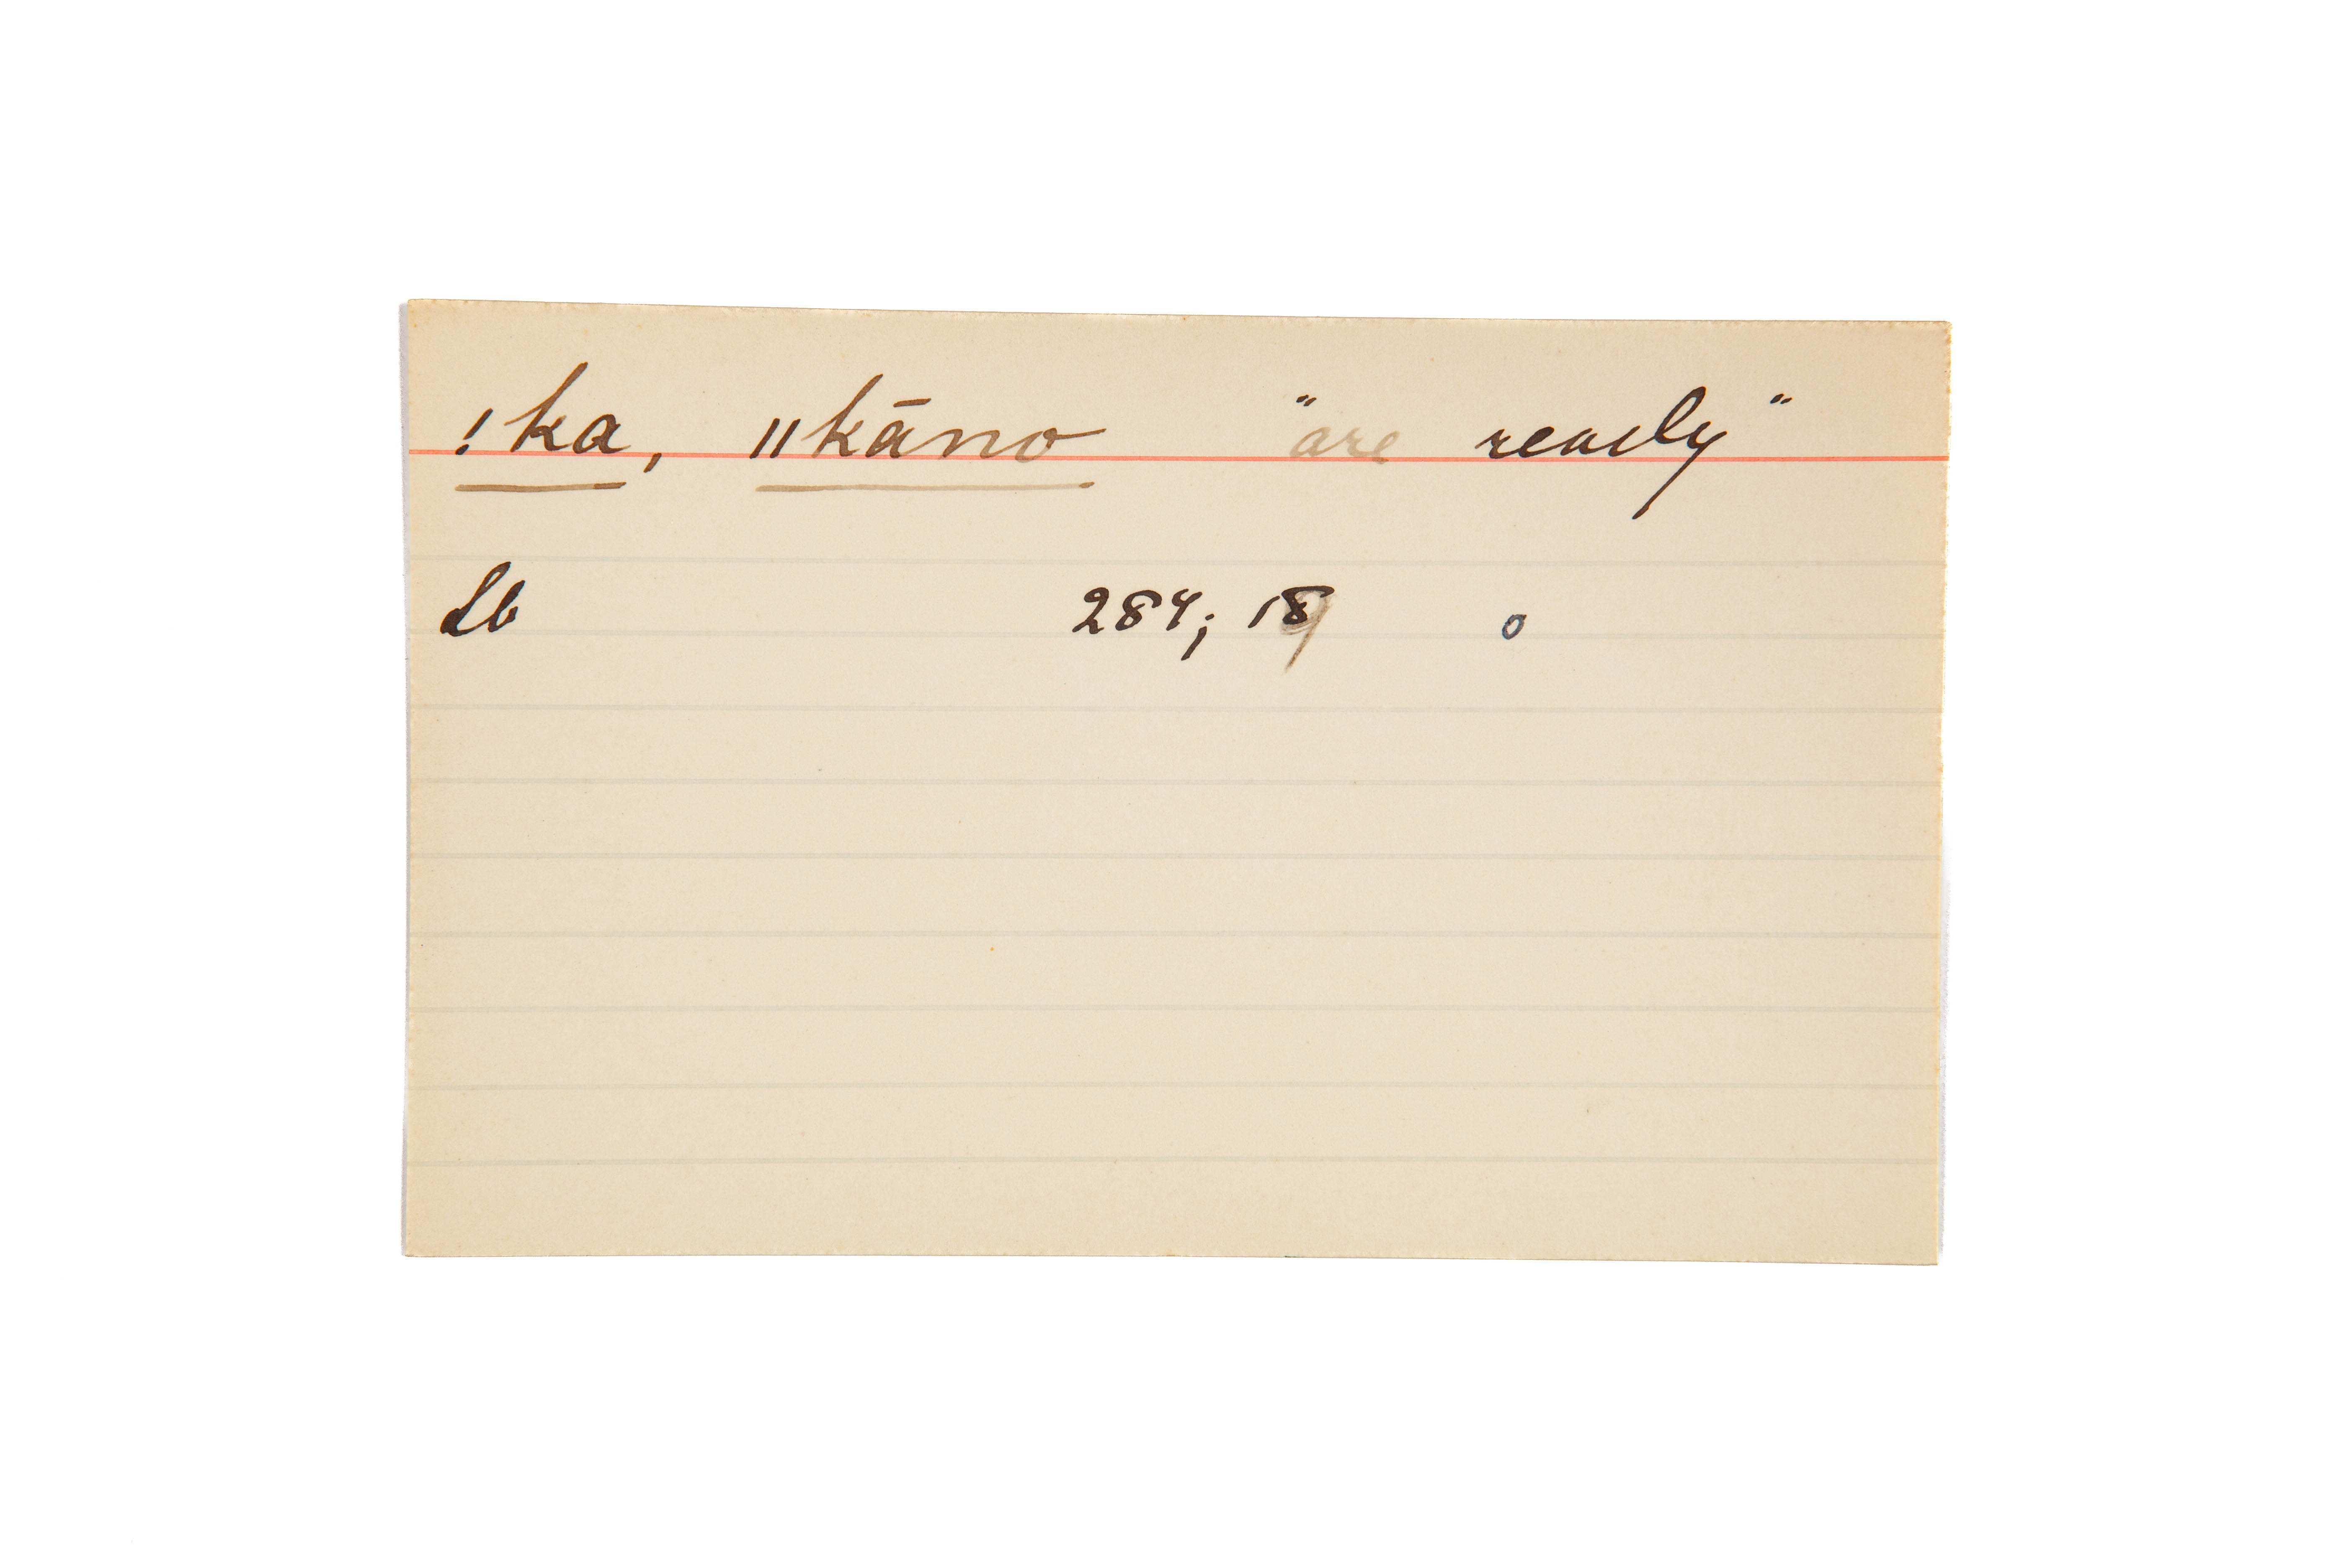 !ka, ǁkāno "are ready"
Lb 284; 18 o